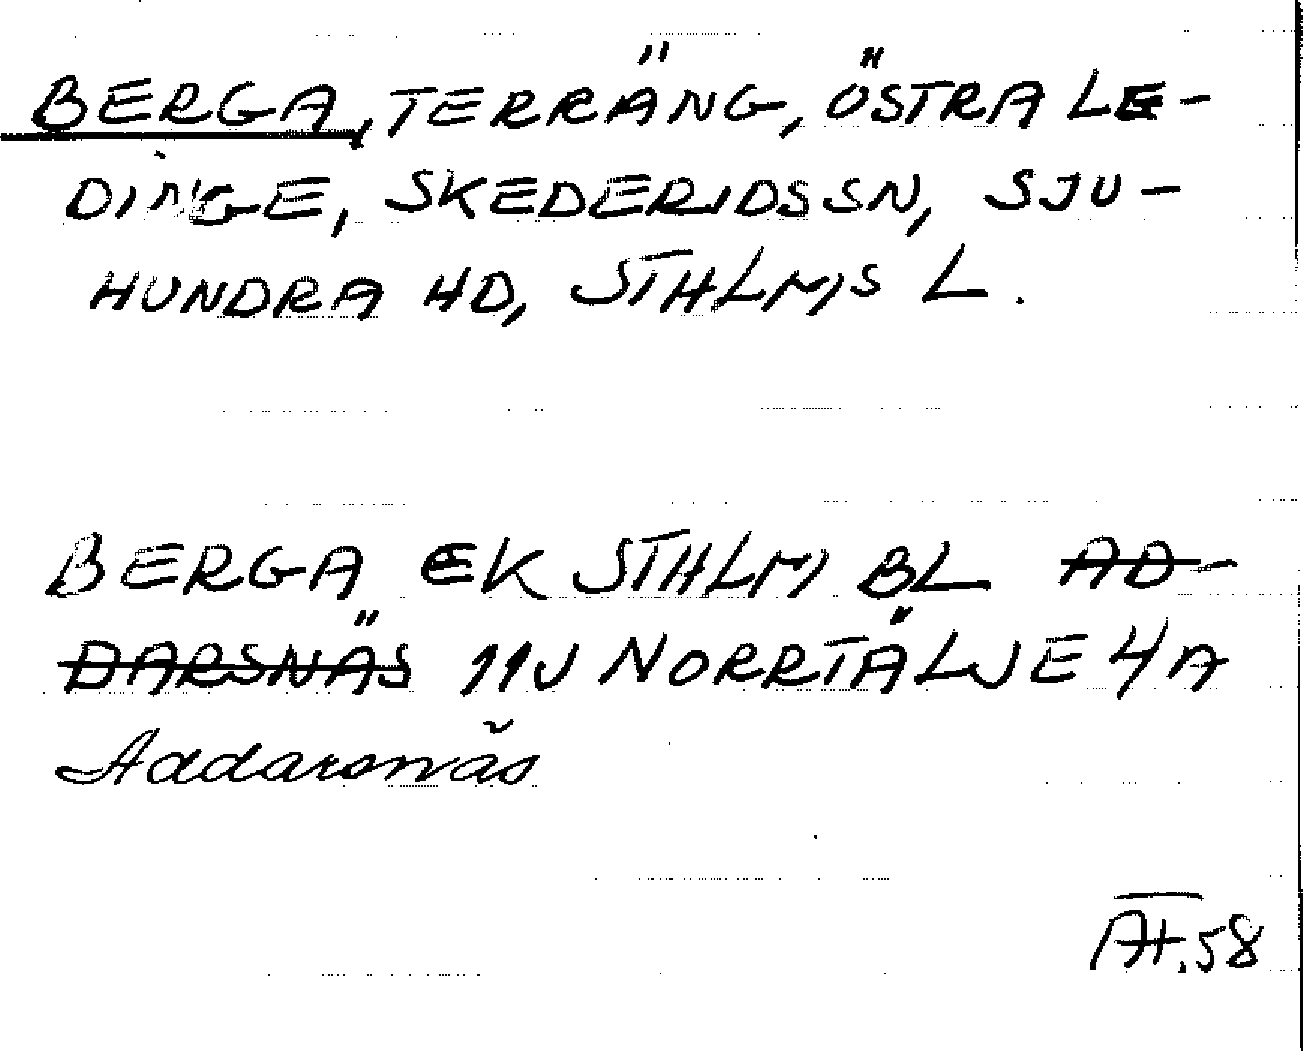 BERGA, TERRÄNG, ÖSTRA LE-
DINGE, SKEDERIDS SN, SJU-
HUNDRA HD, STHLMS L.
BERGA EK STHLM BL AD-
DARSNÄS 11J NORRTÄLJE 4A
Addarsnäs
AH.58